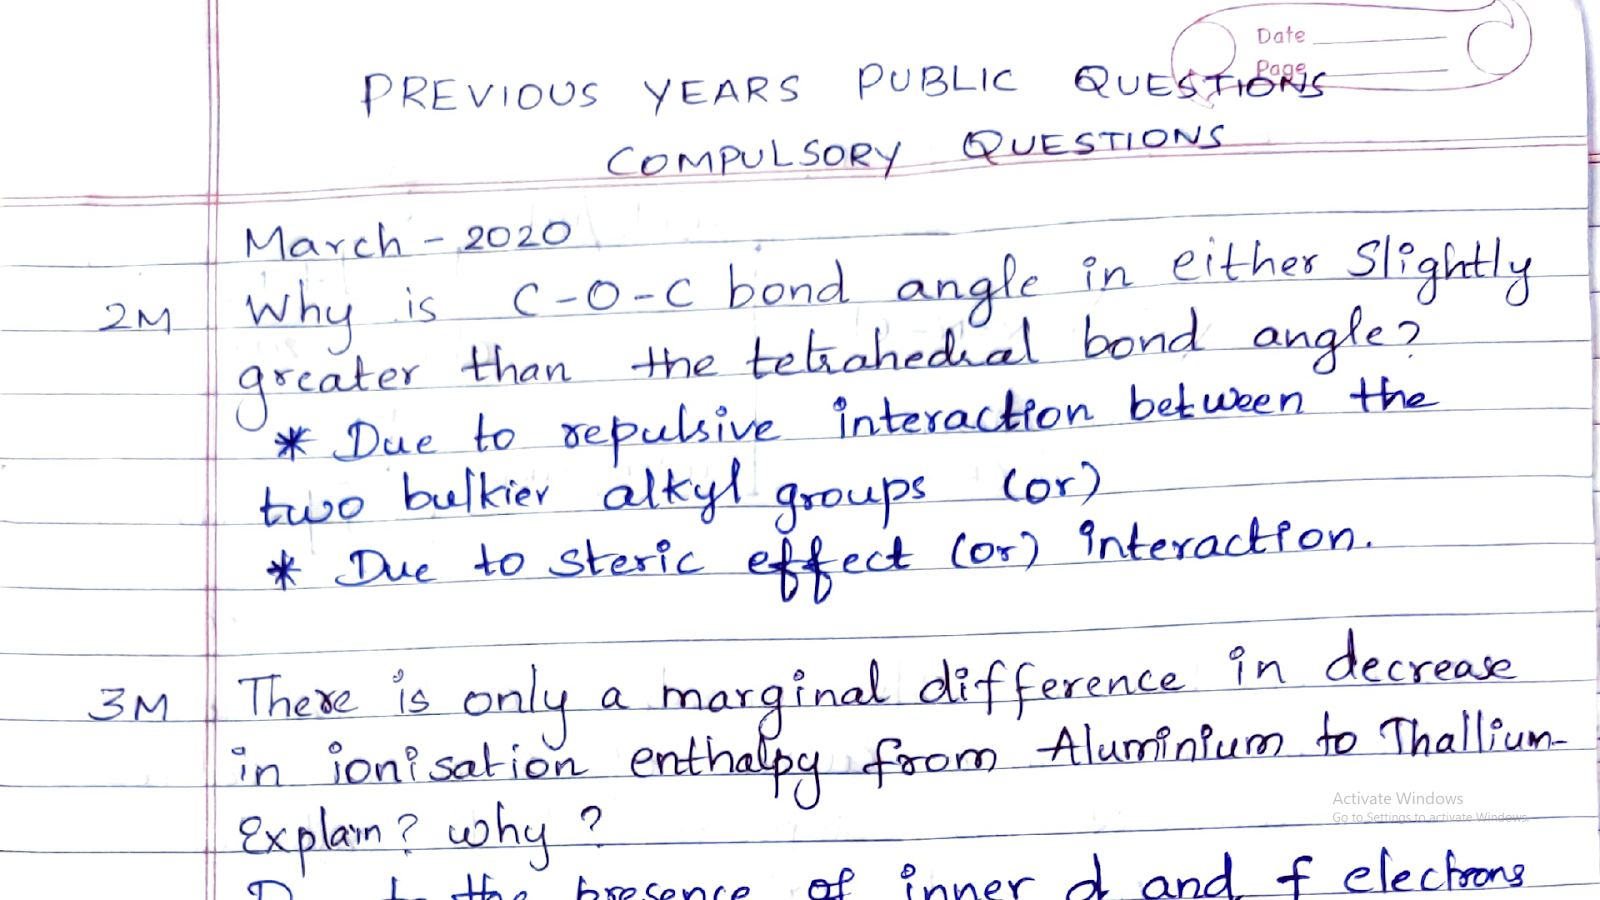 Date
Page
PREVIOUS YEARS PUBLIC QUESTIONS
COMPULSORY QUESTIONS
March - 2020
2M Why is C-O-C bond angle in either Slightly
greater than the tetrahedral bond angle?
* Due to repulsive interaction between the
two bulkier alkyl groups (or)
* Due to steric effect (or) interaction.
3M There is only a marginal difference in decrease
in ionisation enthalpy from Aluminium to Thallium-
Explain? why ?
to the presence of inner d and f electrons
Activate Windows
Go to Settings to activate Windows.